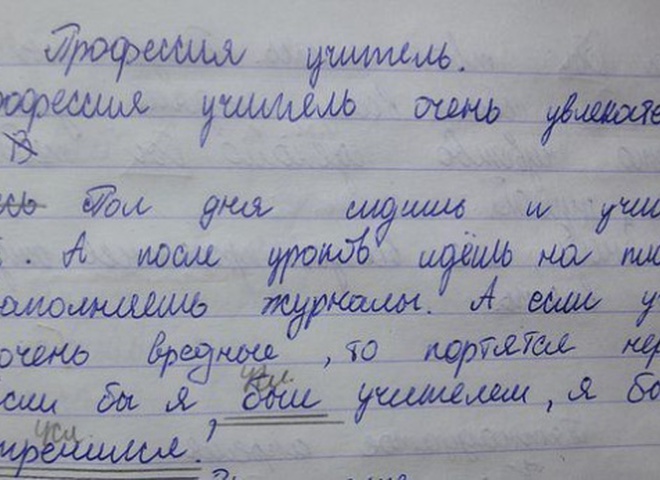 Профессия учитель.
рофессия учитель очень увлекате
В
Пол дня сидишь и учи
. А после уроков идёшь на
аполняешь журналы. А если у
очень вредные, то портятся нер
сли бы я был учителем, я бо
усл
, трешился.
усл